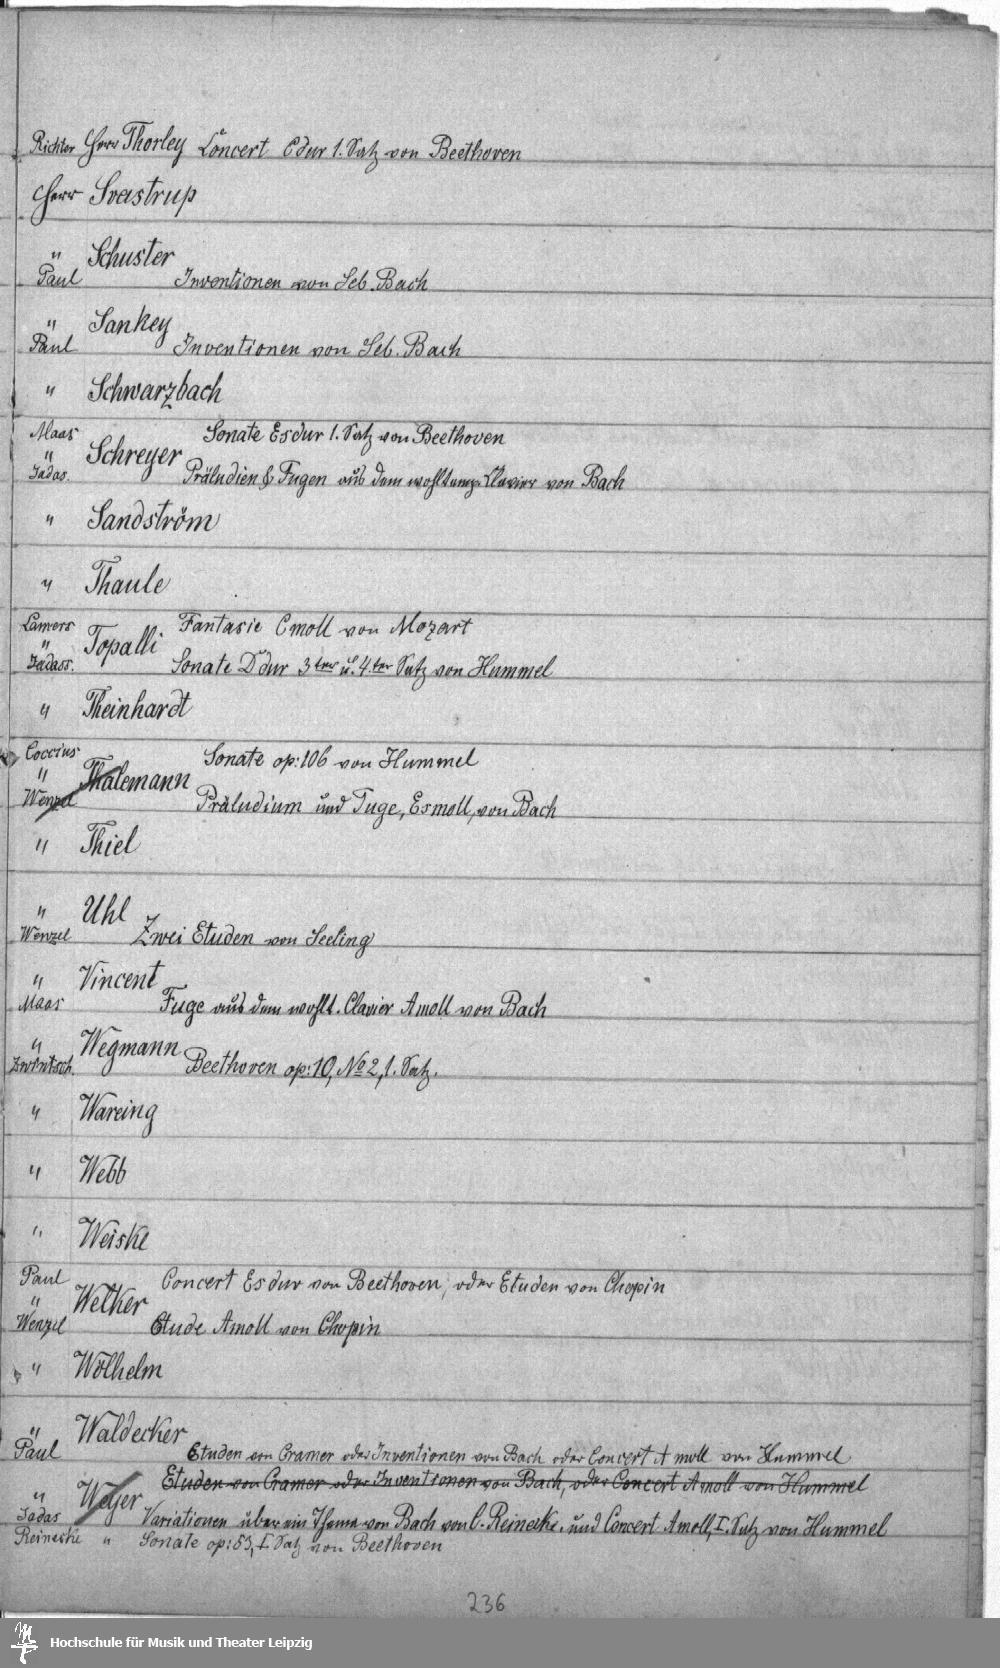 Richter Herr Thorley Concert Cdur 1. Satz von Beethoven
Herr Svastrup
" Schuster
Paul Inventionen von Seb. Bach
" Sankey
Paul Inventionen von Seb. Bach
" Schwarzbach
Maas Sonate Esdur 1. Satz von Beethoven
" Schreyer
Jadas. Präludien & Fugen aus dem wohltemp. Clavier von Bach
" Sandström
" Thaule
Lamers Fantasie Cmoll von Mozart
" Topalli
Jadass. Sonate Ddur 3ter u. 4.ter Satz von Hummel
" Theinhardt
Coccius Sonate op: 106 von Hummel
" Thalemann
Wenzel Präludium und Fuge, Esmoll, von Bach
" Thiel
" Uhl
Wenzel Zwei Etuden von Seeling
" Vincent
Maas Fuge aus dem wohlt. Clavier Amoll von Bach
" Wegmann
Zwintsch. Beethoven op: 10, No 2, 1. Satz.
" Wareing
" Webb
" Weiske
Paul Concert Esdur von Beethoven, oder Etuden von Chopin
" Welker
Wenzel Etude Amoll von Chopin
" Wölhelm
" Waldecker
Paul Etuden von Cramer oder Inventionen von Bach oder Concert A moll von Hummel
Etuden von Cramer oder Inventionen von Bach, oder Concert Amoll von Hummel
" Weyer
Jadas Variationen über ein Thema von Bach von C. Reinecke. und Concert Amoll, I. Satz von Hummel
Reinecke " Sonate op: 53, I. Satz von Beethoven
236
Hochschule für Musik und Theater Leipzig